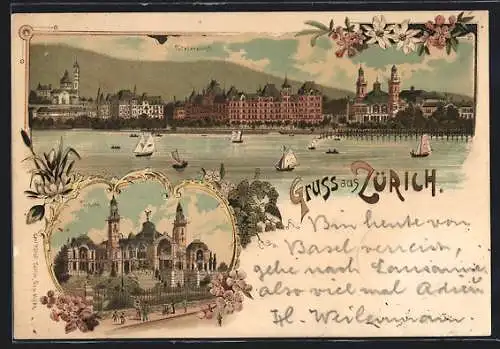 Gruss aus ZÜRICH.
Bin heute von
Basel verreist,
gehe nach Lausanne
also viel mal Adieu